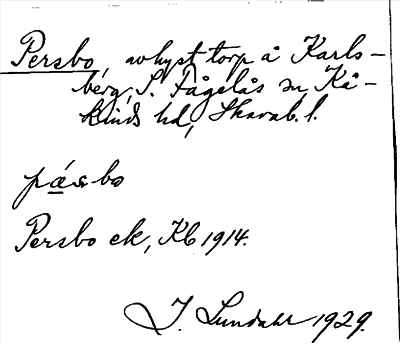 Persbo, avhyst torp å Karls-
berg, S. Fågelås sn, Kå-
kinds hd, Skarab. l.
pǽsbo
Persbo ek, Kb 1914.
J. Lundahl 1929.